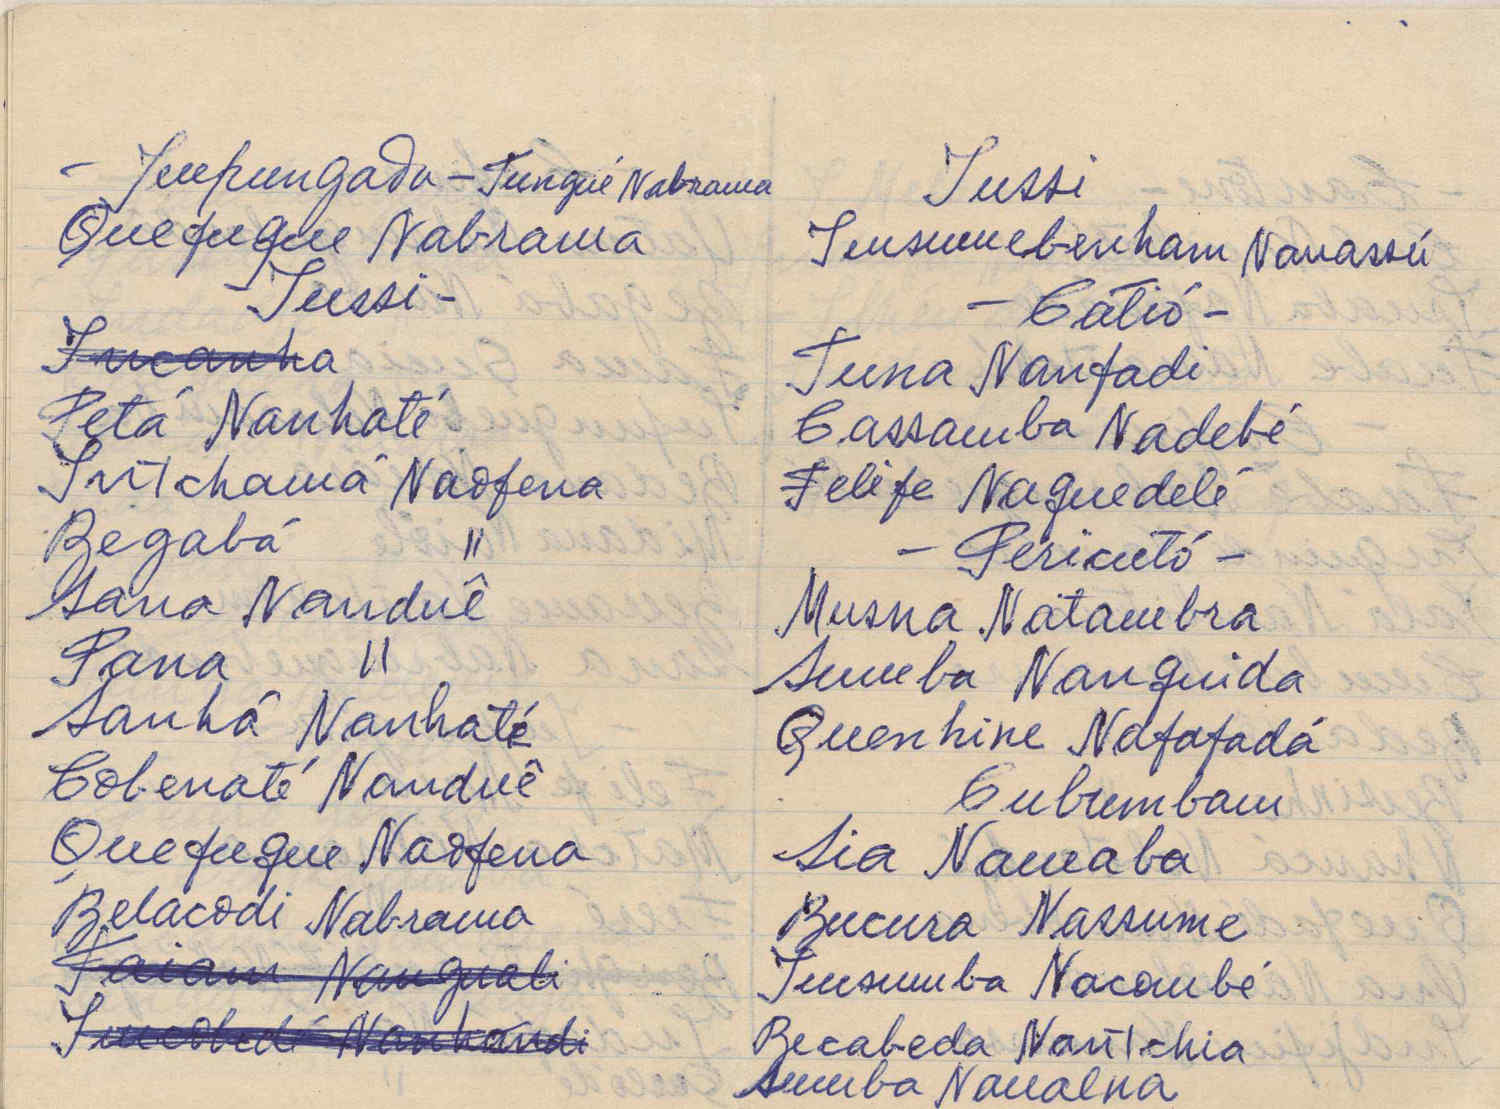 - Impungada - Tungué Nabrama
Quefugue Nabrama
- Jussi -
Incanha
Petá Nanhaté
Intchamá Nadfena
Begabá "
Sana Nanduê
Pana "
Sanhá Nanhaté
Cobenaté Nanduê
Quefugue Nadfena
Belacodi Nabrama
Faiam Nanguali
Incobedé Nanhandi
Jussi
Insumebenham Nanassú
- Catió -
Tuna Nanfadi
Cassamba Nadebé
Felife Naguedelé
- Pericutó -
Musna Natambra
Sumba Nanguida
Quenhine Nafafadá
Cubumbam
Sia Namaba
Bucura Nassume
Insumba Nacombé
Becabeda Nantchia
Sumba Nanalna